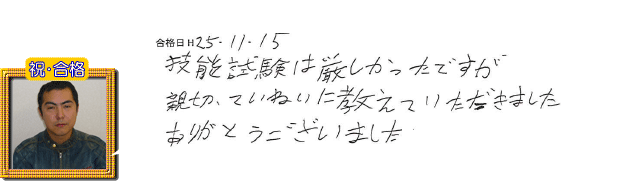 合格日H25.11.15
祝・合格
技能試験は厳しかったですが
親切、ていねいに教えていただきました
ありがとうございました